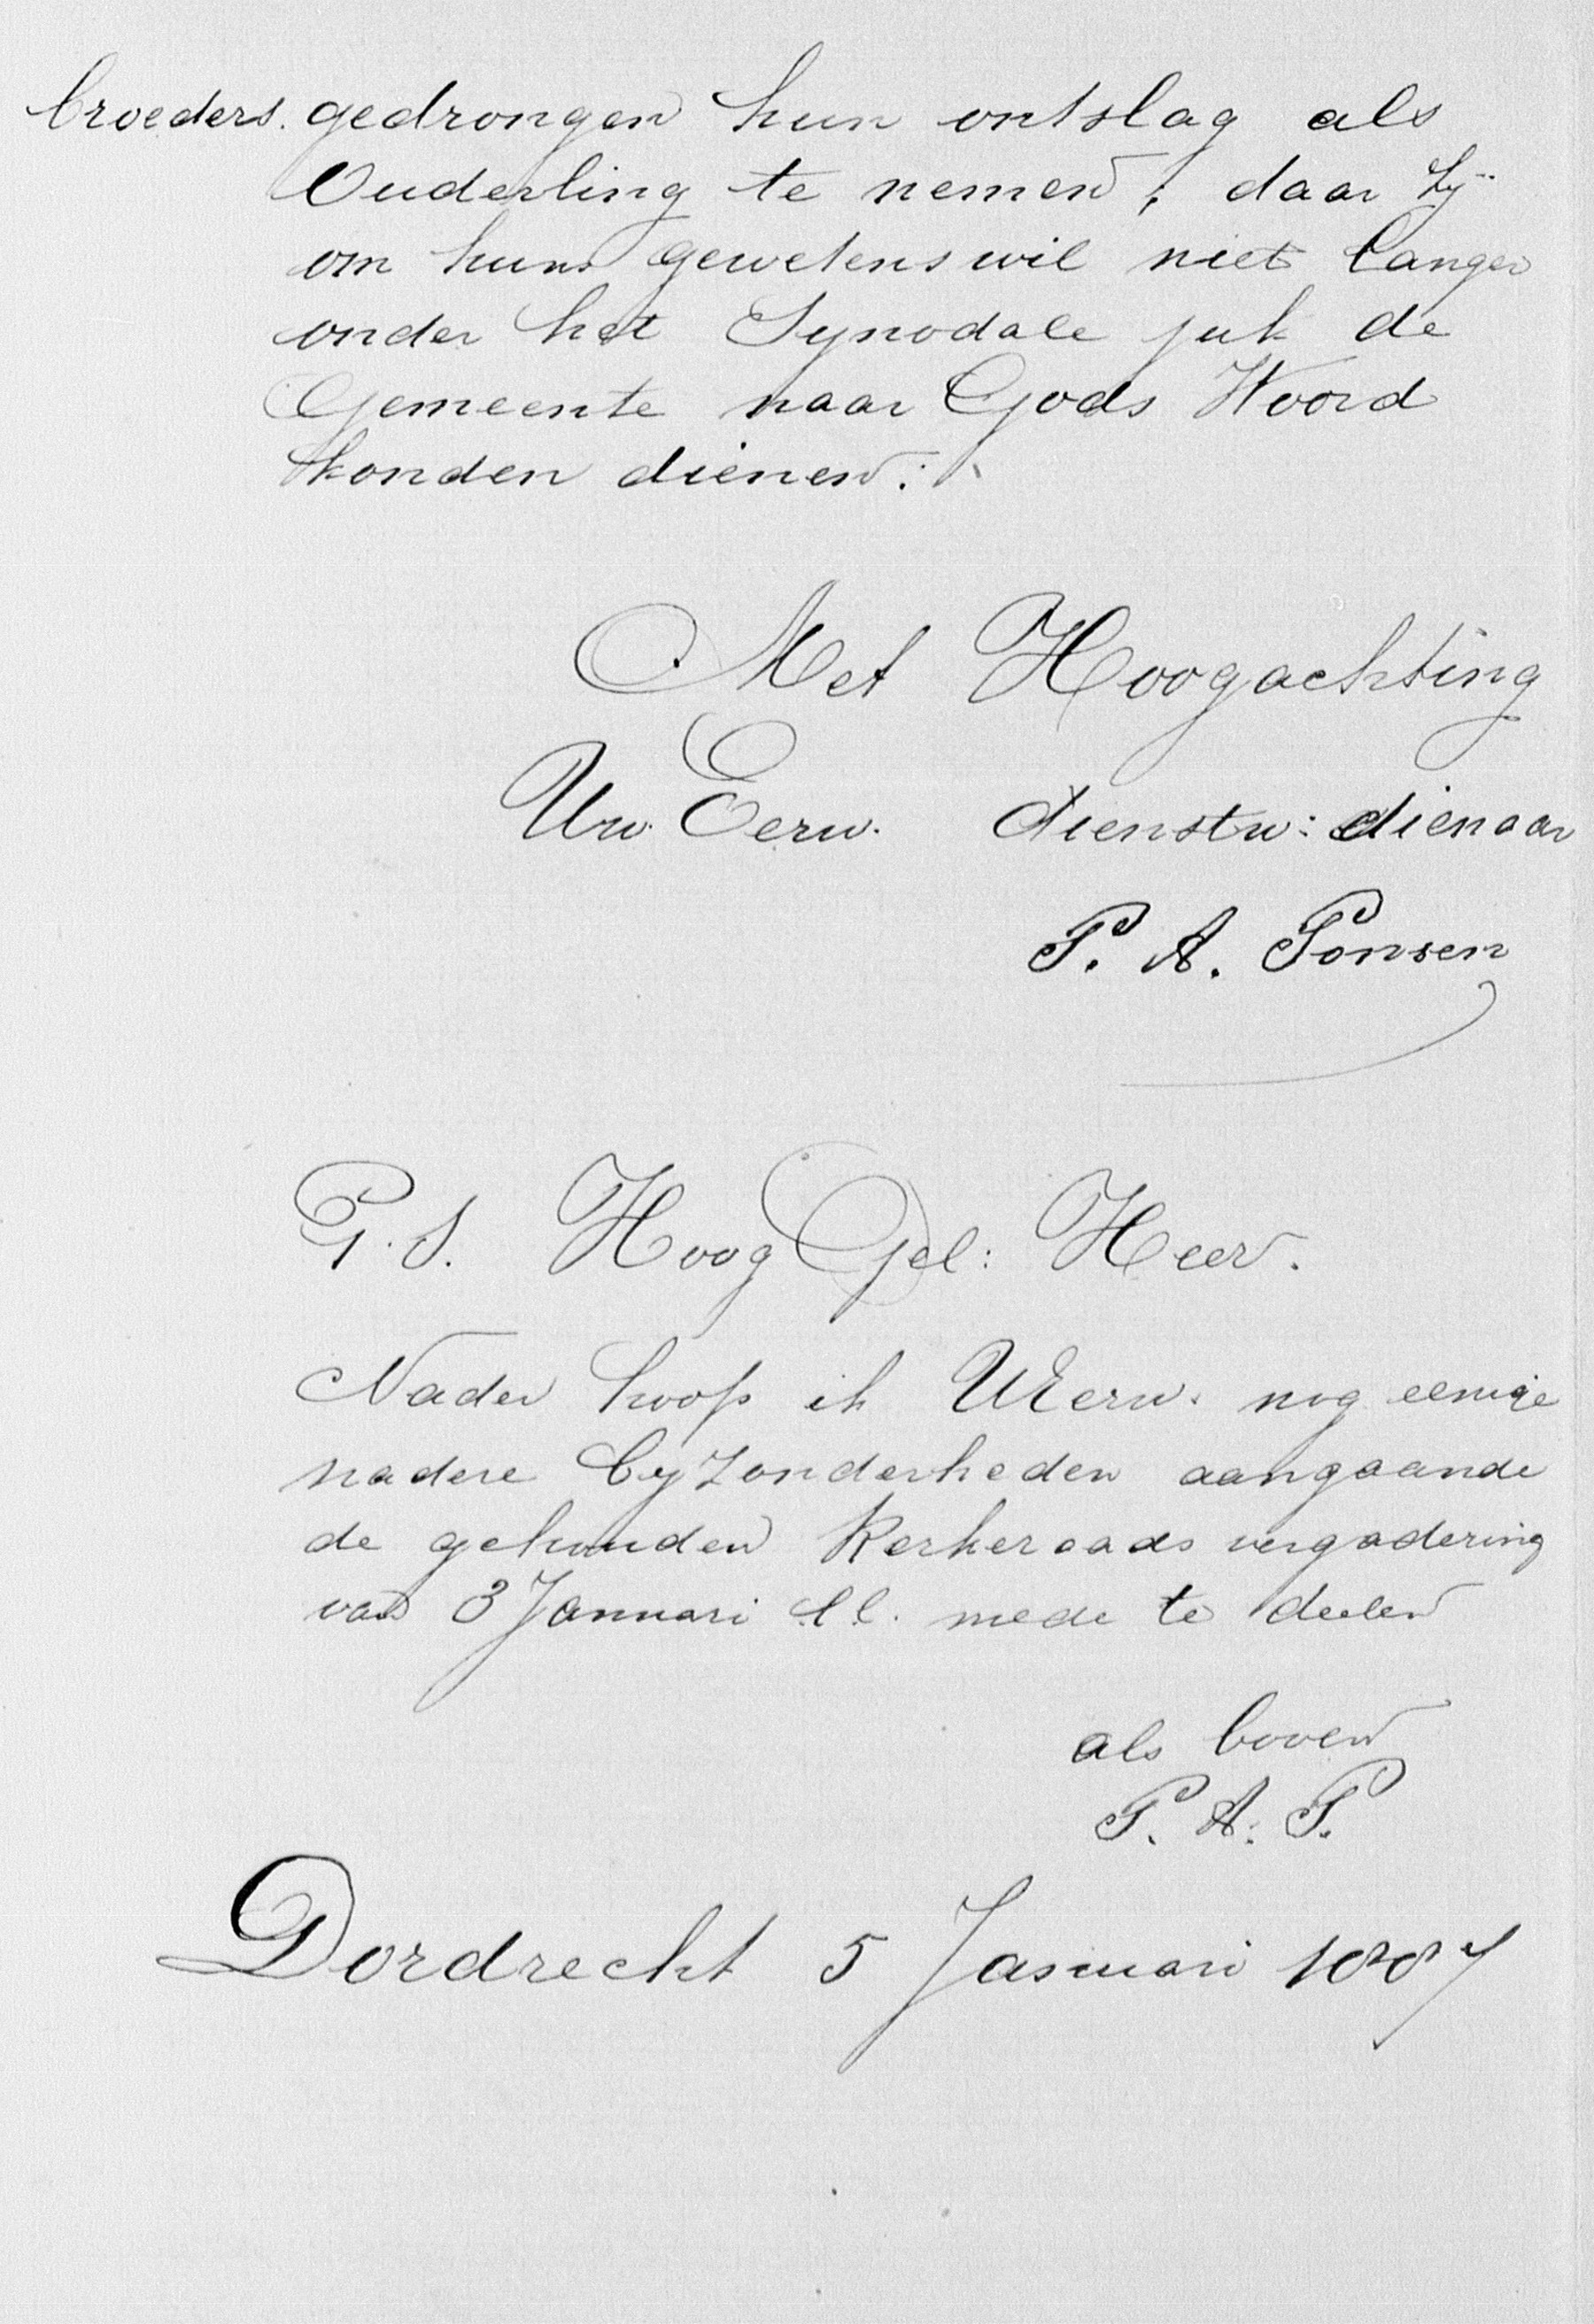 broeders. gedrongen hun ontslag als
Ouderling te nemen, daar zij
om huns gewetenswil niet langer
onder het Synodale juk de
Gemeente naar Gods Woord
konden dienen.
Met Hoogachting
Uw Eerw. dienstw: dienaar
P. A. Ponsen
P.S. HoogGel: Heer.
Nader hoop ik UEerw. nog eenige
nadere byzonderheden aangaande
de gehouden Kerkeraads vergadering
van 3 Januari l.l. mede te deelen
als boven
P. A. P.
Dordrecht 5 Januari 1887